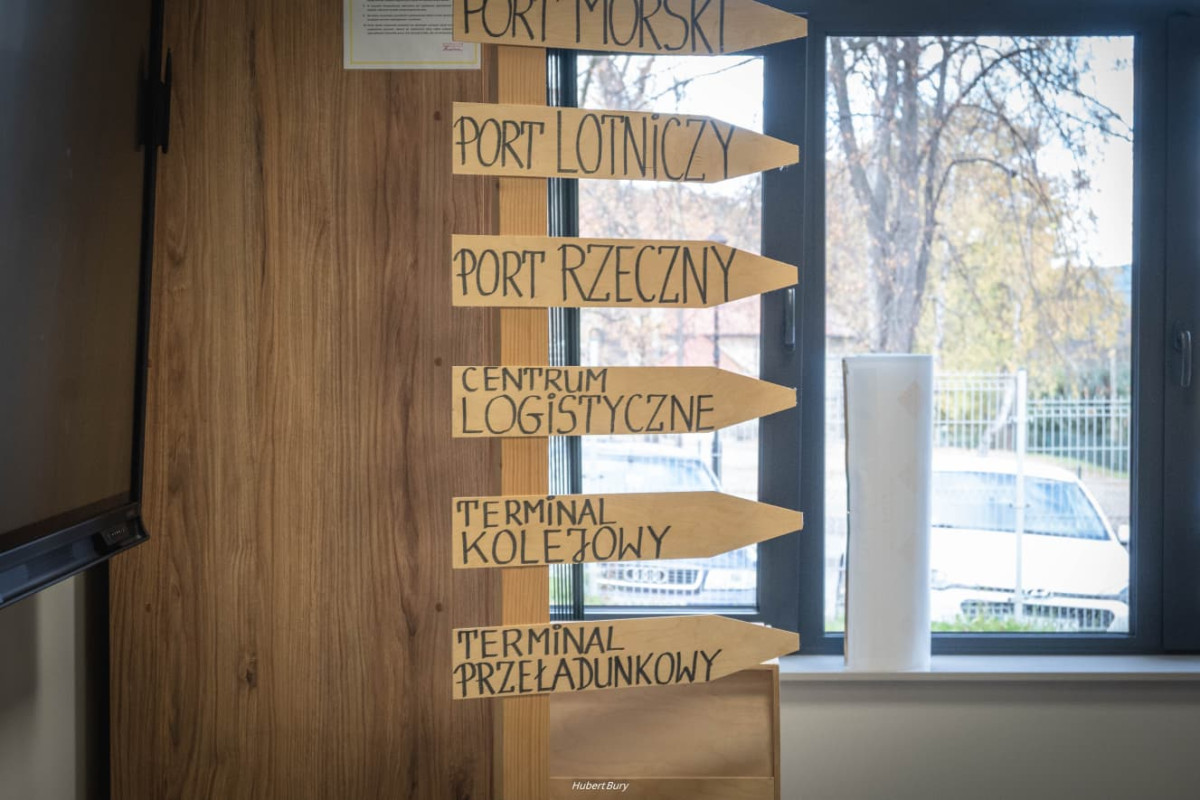 PORT MORSKI
PORT LOTNiCZY
PORT RZECZNY
CENTRUM
LOGiSTYCZNE
TERMiNAL
KOLEJOWY
TERMiNAL
PRZEŁADUNKOWY
Hubert Bury